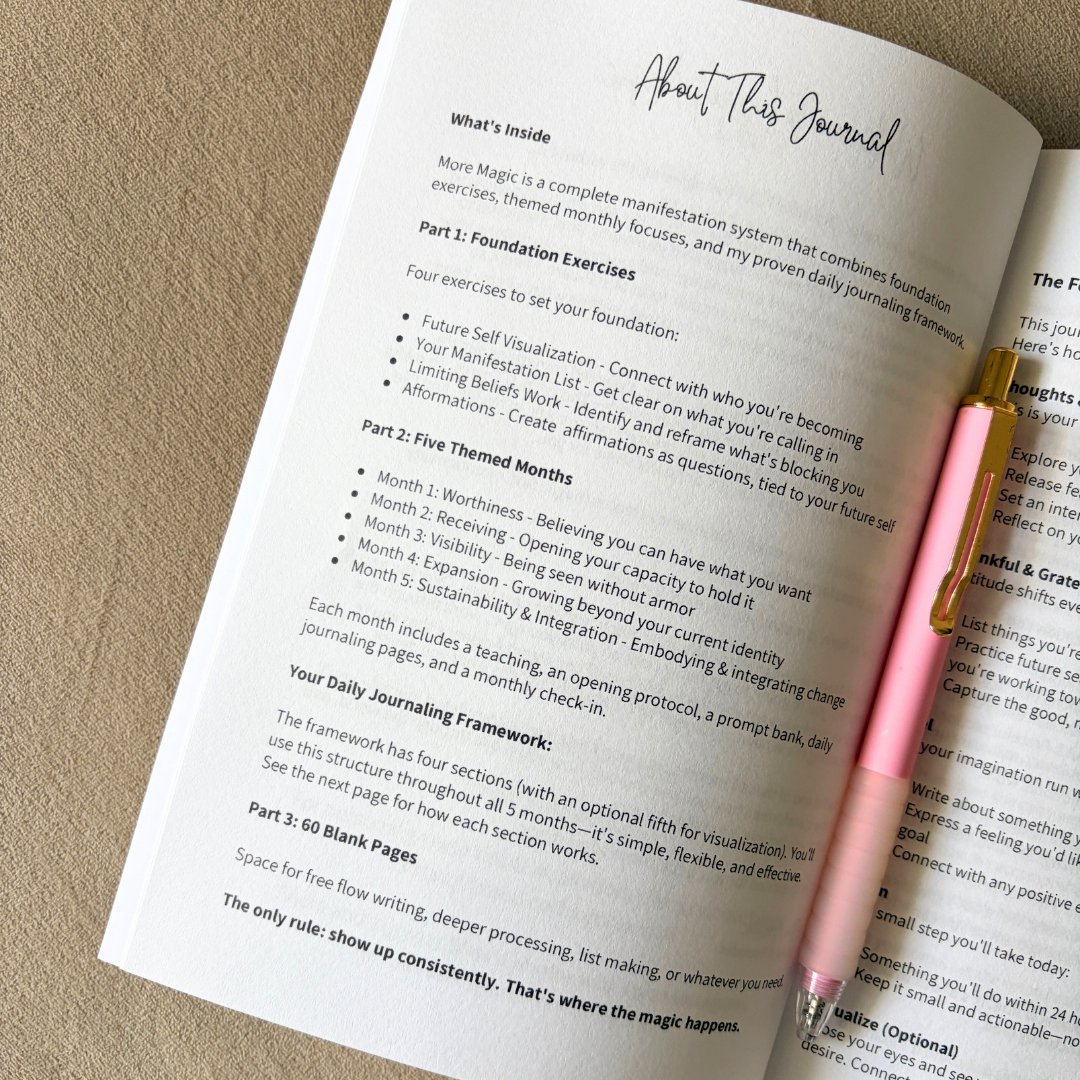 About This Journal
What's Inside
More Magic is a complete manifestation system that combines foundation
exercises, themed monthly focuses, and my proven daily journaling framework.
Part 1: Foundation Exercises
Four exercises to set your foundation:
• Future Self Visualization - Connect with who you're becoming
• Your Manifestation List - Get clear on what you're calling in
• Limiting Beliefs Work - Identify and reframe what's blocking you
• Afformations - Create affirmations as questions, tied to your future self
Part 2: Five Themed Months
• Month 1: Worthiness - Believing you can have what you want
• Month 2: Receiving - Opening your capacity to hold it
• Month 3: Visibility - Being seen without armor
• Month 4: Expansion - Growing beyond your current identity
• Month 5: Sustainability & Integration - Embodying & integrating change
Each month includes a teaching, an opening protocol, a prompt bank, daily
journaling pages, and a monthly check-in.
Your Daily Journaling Framework:
The framework has four sections (with an optional fifth for visualization). You'll
use this structure throughout all 5 months—it's simple, flexible, and effective.
See the next page for how each section works.
Part 3: 60 Blank Pages
Space for free flow writing, deeper processing, list making, or whatever you need.
The only rule: show up consistently. That's where the magic happens.
The
This
Here's
is your
Explore
Release
Set an
Reflect on
& Grate
shifts
List things you're
Practice future
you're working
Capture the good,
your imagination run
Write about something
Express a feeling you'd
goal
Connect with any positive
small step you'll take today:
Something you'll do within 24
Keep it small and actionable—
(Optional)
your eyes and see
desire.